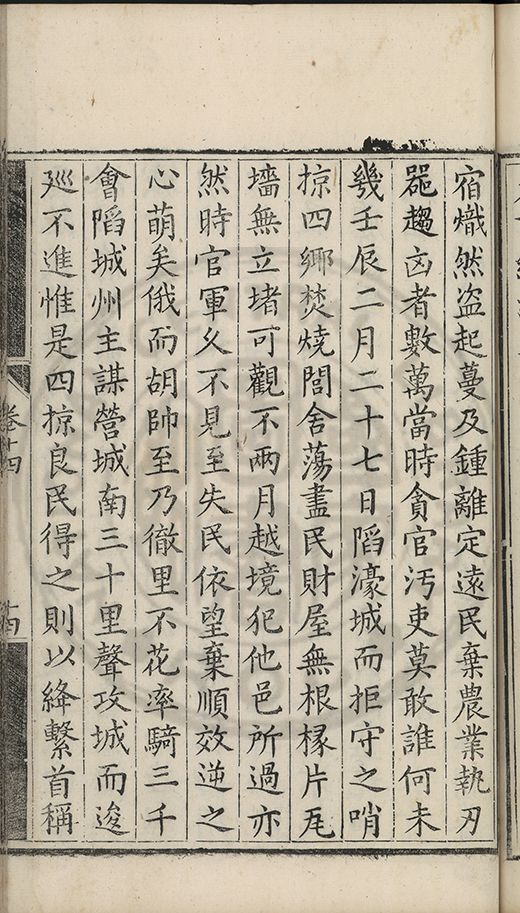 宿熾然盗起蔓及鍾離定遠民棄農業執刃
噐趨㐫者數萬當時貪官汚吏莫敢誰何未
幾壬辰二月二十七日陷濠城而拒守之哨
掠四鄉焚燒閭舍蕩盡民財屋無根椽片瓦
墻無立堵可觀不兩月越境犯他邑所過亦
然時官軍久不見至失民依望棄順效逆之
心萌矣俄而胡帥至乃徹里不花率騎三千
會陷城州主謀營城南三十里聲攻城而逡
廵不進惟是四掠良民得之則以絳繫首稱
卷十四
十四